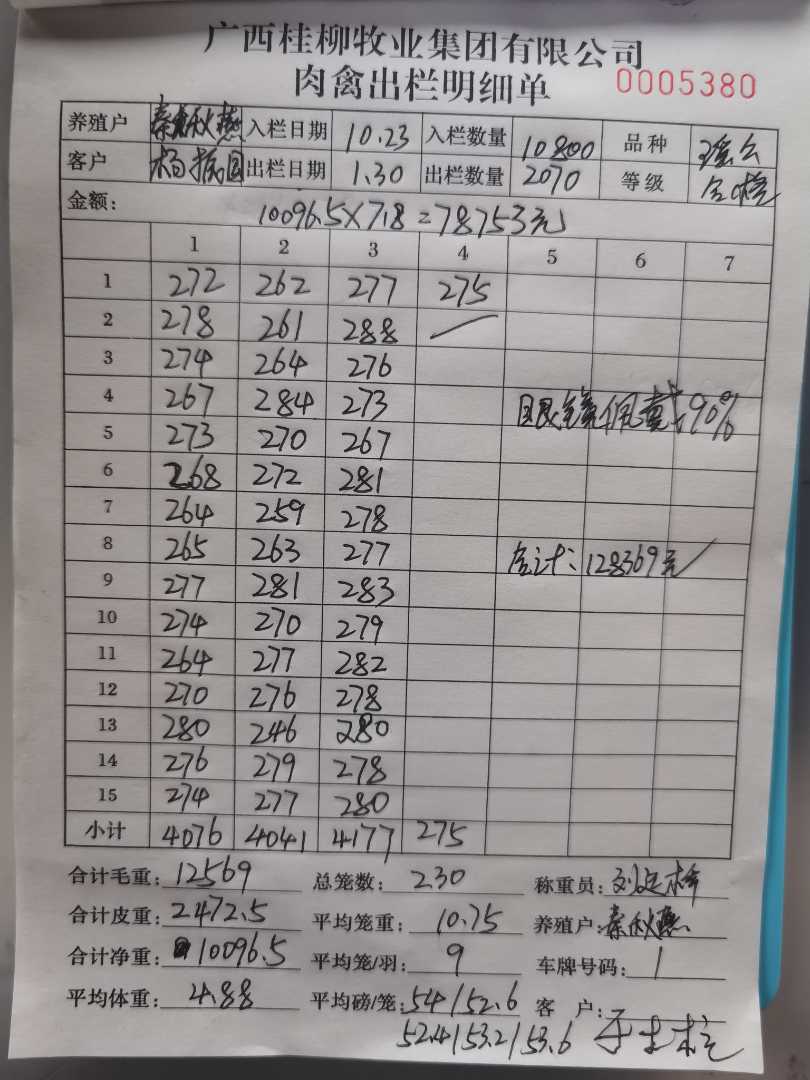 广西桂柳牧业集团有限公司
肉禽出栏明细单 0005380
养殖户 秦秋燕 入栏日期 10.23 入栏数量 10800 品种 瑶公
客户 杨振国 出栏日期 1.30 出栏数量 2070 等级
金额: 10096.5×7.8=78753元
1 2 3 4 5 6 7
1 272 262 277 275
2 278 261 288
3 274 264 276
4 267 284 273 眼镜佩戴90%
5 273 270 267
6 268 272 281
7 264 259 278
8 265 263 277 合计:128369元
9 277 281 283
10 274 270 279
11 264 277 282
12 270 276 278
13 280 246 280
14 276 279 278
15 274 277 280
小计 4076 4041 4177 275
合计毛重: 12569 总笼数: 230 称重员:
合计皮重: 2472.5 平均笼重: 10.75 养殖户: 秦秋燕
合计净重: 10096.5 平均笼/羽: 9 车牌号码: /
平均体重: 4.88 平均磅/笼: 54/52.6 客 户:
52.4/53.2/53.6